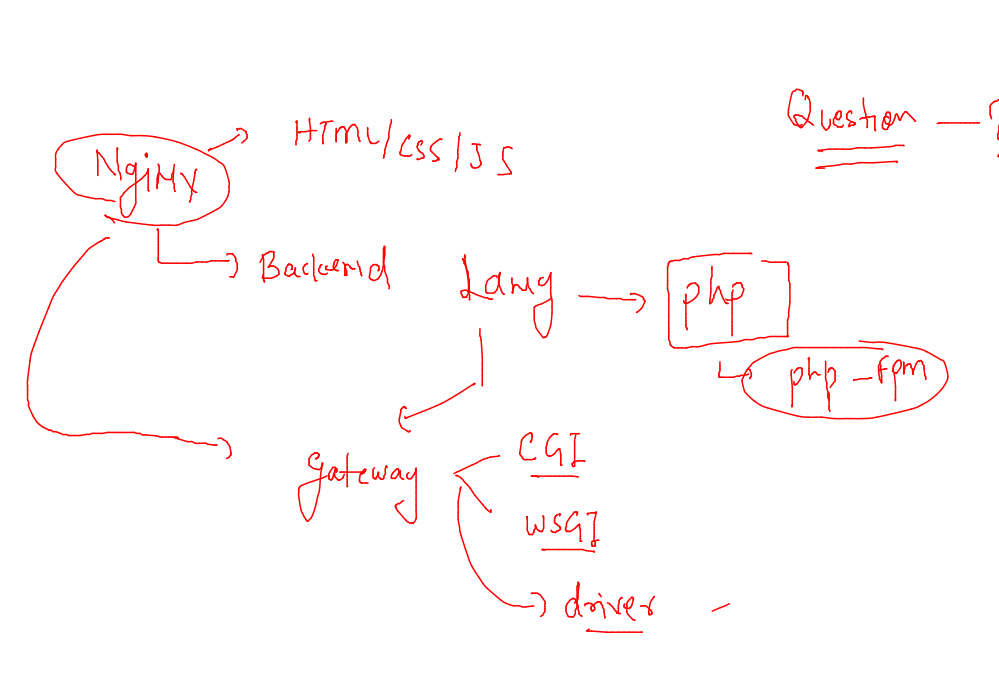 Question — ?
HTML/CSS/JS
Nginx
Backend Lang
php
php-fpm
gateway
CGI
WSGI
driver